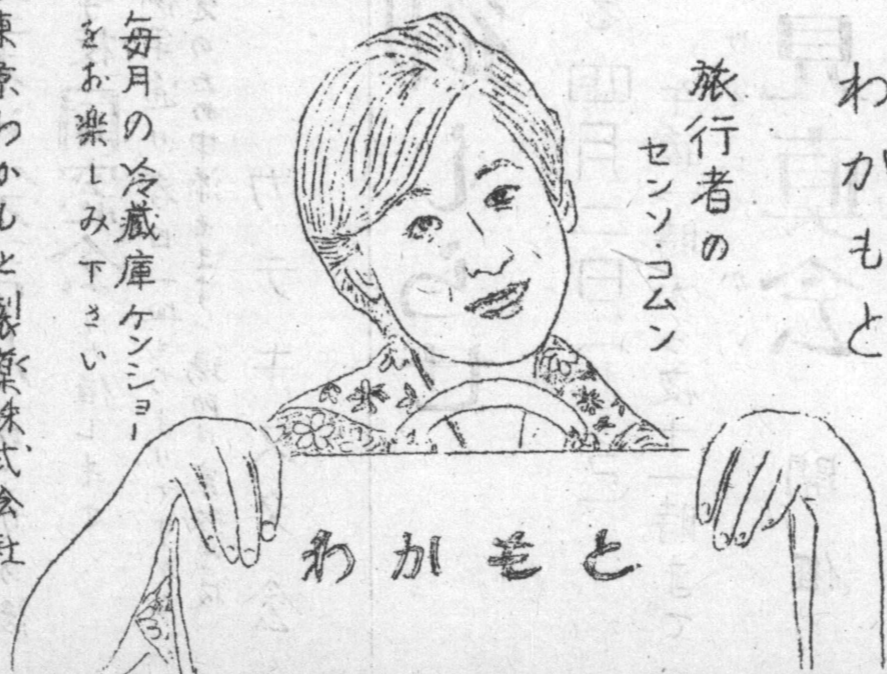 わかもと
旅行者の
センソ・コムン
毎月の冷蔵庫ケンショー
をお楽しみ下さい
東京わかもと製薬株式会社
わかもと